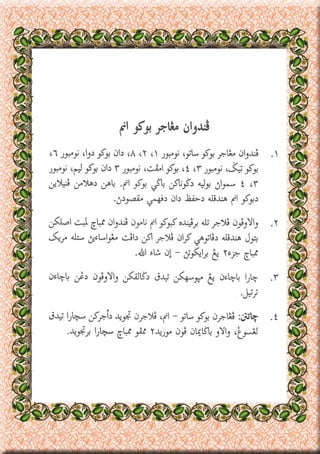 ڤندوان مڠاجر بوكو انم
١. ڤندوان مڠاجر بوكو ساتو، نومبور ١، ٢، ٨، دان بوكو دوا، نومبور ٦،
بوكو تيݢ، نومبور ٣، ٤، بوكو امڤت، نومبور ٣ دان بوكو ليم، نومبور
٣، ٤ سموان بوليه دݢوناكن باݢي بوكو انم. باهن دهلامن ڤنيلاين
دبوكو انم هندقله دحفظ دان دفهمي مقصودڽ.
٢. والاوڤون ڤلاجر تله برڤينده كبوكو انم نامون ڤندوان ممباچ لمبت اصلكن
بتول هندقله دڤاتوهي كران ڤلاجر اكن داڤت مڠواساءيڽ ستله مريك
ممباچ جزء ٢ يڠ برايكوتڽ - إن شاء الله.
٣. چارا باچاءن يڠ مڽوسهكن تيدق دݢالقكن والاوڤون دڠن باچاءن
ترتيل.
٤. چاتتن: ڤڠاجرن بوكو ساتو - انم، ڤلاجرن تجويد دأجركن سچارا تيدق
لڠسوڠ، والاو باݢايمان ڤون موريد٢ ممڤو ممباچ سچارا برتجويد.